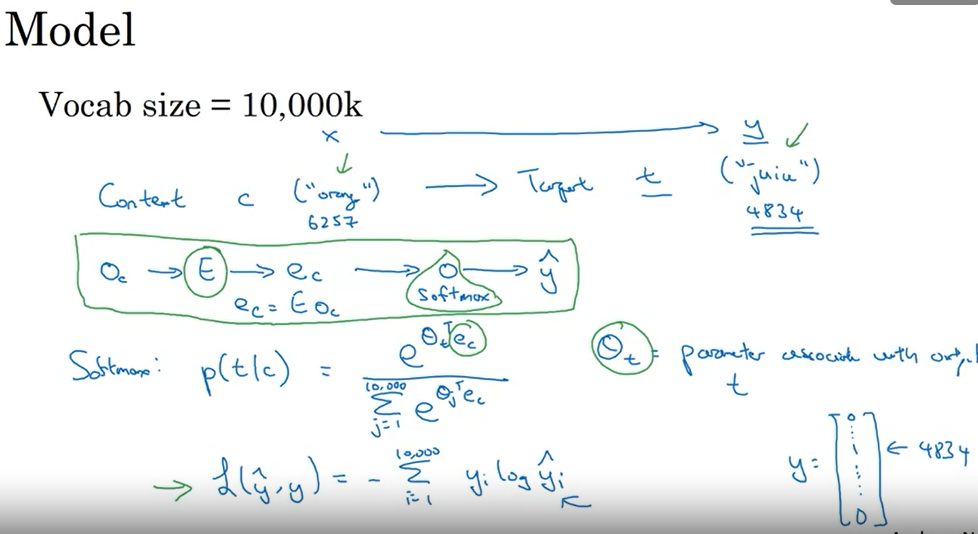 Model
Vocab size = 10,000k
x → y
Content c ("orang") → Target t ("juice")
6257 4834
O_c → E → e_c → O → ŷ
softmax
e_c = E O_c
Softmax: p(t|c) = e^{θ_t^T e_c} / Σ_{j=1}^{10,000} e^{θ_j^T e_c}
θ_t = parameter associate with outpu
t
→ L(ŷ,y) = - Σ_{i=1}^{10,000} y_i log ŷ_i ←
y = [0 ⋮ 1 ⋮ 0] ← 4834